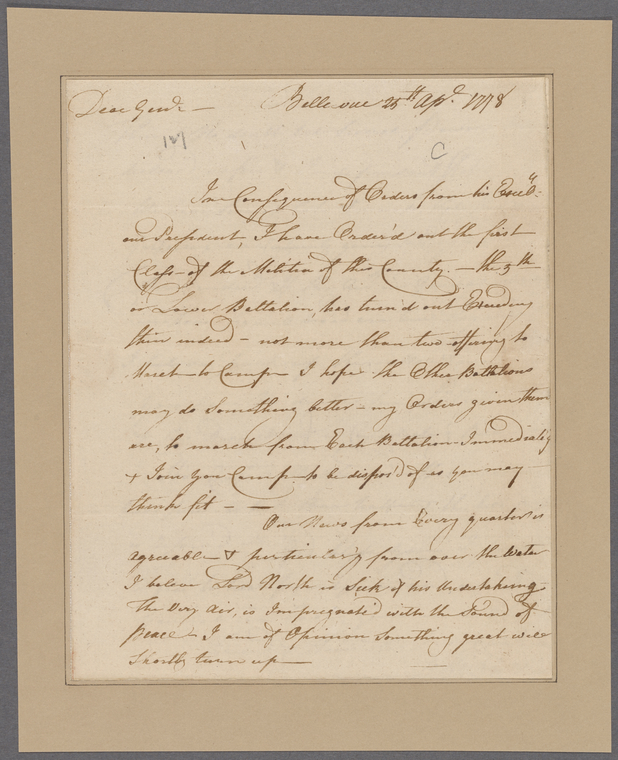 Dear Genl. — Bellevue 25th Apl. 1778
127 C
In Consequence of Orders from his Excely.
our President, I have Order'd out the first
Class of the Militia of this County. — the 5th
or Lower Battalion, has turn'd out Exceeding
thin indeed — not more than two offering to
March to Camp — I hope the Other Battalions
may do Something better — my Orders given them
are, to march from Each Battalion Immediately
& Join your Camp to be dispos'd of as you may
think fit — —
Our News from Every quarter is
agreeable — & perticularly from over the Water
I beleve Lord North is Sick of his Undertaking.
The Very Air, is Impregnated with the Sound of
Peace — I am of Opinion Something great will
Shortly turn up —